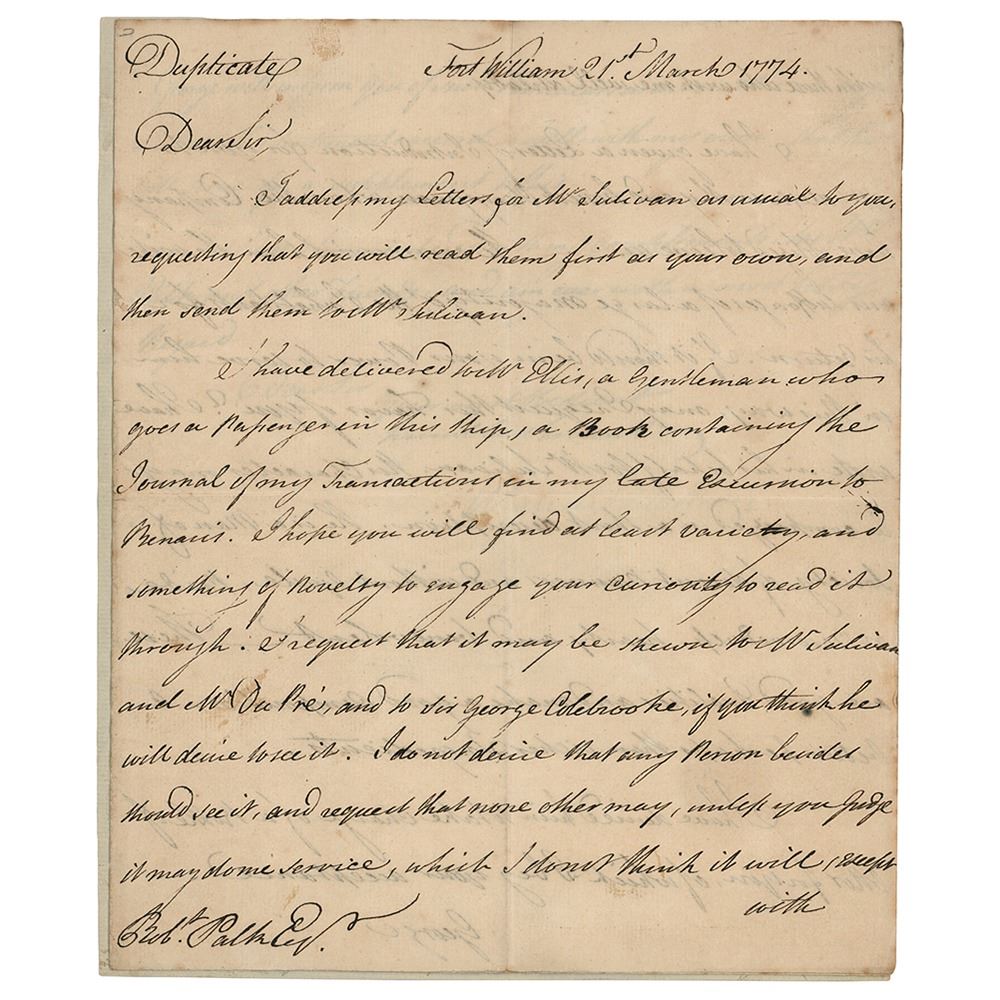 Duplicate
Fort William 21st March 1774.
Dear Sir,
I address my Letters for Mr Sulivan as usual to you,
requesting that you will read them first as your own, and
then send them to Mr Sulivan.
I have delivered to Mr Ellis, a Gentleman who
goes a Passenger in this Ship, a Book containing the
Journal of my Transactions in my late Excursion to
Benaris. I hope you will find at least variety, and
something of Novelty to engage your Curiosity to read it
through. I request that it may be shewn to Mr Sulivan
and Mr Du Pré, and to Sir George Colebrooke, if you think he
will desire to see it. I do not desire that any Person besides
should see it, and request that none other may, unless you Judge
it may do me Service, which I do not think it will, except
with
Robt. Palk Esqr.